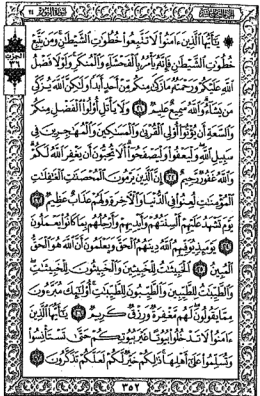 ۞ يَٰٓأَيُّهَا ٱلَّذِينَ ءَامَنُوا۟ لَا تَتَّبِعُوا۟ خُطُوَٰتِ ٱلشَّيْطَٰنِ وَمَن يَتَّبِعْ
خُطُوَٰتِ ٱلشَّيْطَٰنِ فَإِنَّهُۥ يَأْمُرُ بِٱلْفَحْشَآءِ وَٱلْمُنكَرِ وَلَوْلَا فَضْلُ
ٱللَّهِ عَلَيْكُمْ وَرَحْمَتُهُۥ مَا زَكَىٰ مِنكُم مِّنْ أَحَدٍ أَبَدًا وَلَٰكِنَّ ٱللَّهَ يُزَكِّى
مَن يَشَآءُ وَٱللَّهُ سَمِيعٌ عَلِيمٌ ٢١ وَلَا يَأْتَلِ أُو۟لُوا۟ ٱلْفَضْلِ مِنكُمْ
وَٱلسَّعَةِ أَن يُؤْتُوٓا۟ أُو۟لِى ٱلْقُرْبَىٰ وَٱلْمَسَٰكِينَ وَٱلْمُهَٰجِرِينَ فِى
سَبِيلِ ٱللَّهِ وَلْيَعْفُوا۟ وَلْيَصْفَحُوٓا۟ أَلَا تُحِبُّونَ أَن يَغْفِرَ ٱللَّهُ لَكُمْ
وَٱللَّهُ غَفُورٌ رَّحِيمٌ ٢٢ إِنَّ ٱلَّذِينَ يَرْمُونَ ٱلْمُحْصَنَٰتِ ٱلْغَٰفِلَٰتِ
ٱلْمُؤْمِنَٰتِ لُعِنُوا۟ فِى ٱلدُّنْيَا وَٱلْءَاخِرَةِ وَلَهُمْ عَذَابٌ عَظِيمٌ ٢٣
يَوْمَ تَشْهَدُ عَلَيْهِمْ أَلْسِنَتُهُمْ وَأَيْدِيهِمْ وَأَرْجُلُهُم بِمَا كَانُوا۟ يَعْمَلُونَ
٢٤ يَوْمَئِذٍ يُوَفِّيهِمُ ٱللَّهُ دِينَهُمُ ٱلْحَقَّ وَيَعْلَمُونَ أَنَّ ٱللَّهَ هُوَ ٱلْحَقُّ
ٱلْمُبِينُ ٢٥ ٱلْخَبِيثَٰتُ لِلْخَبِيثِينَ وَٱلْخَبِيثُونَ لِلْخَبِيثَٰتِ
وَٱلطَّيِّبَٰتُ لِلطَّيِّبِينَ وَٱلطَّيِّبُونَ لِلطَّيِّبَٰتِ أُو۟لَٰٓئِكَ مُبَرَّءُونَ
مِمَّا يَقُولُونَ لَهُم مَّغْفِرَةٌ وَرِزْقٌ كَرِيمٌ ٢٦ يَٰٓأَيُّهَا ٱلَّذِينَ
ءَامَنُوا۟ لَا تَدْخُلُوا۟ بُيُوتًا غَيْرَ بُيُوتِكُمْ حَتَّىٰ تَسْتَأْنِسُوا۟
وَتُسَلِّمُوا۟ عَلَىٰٓ أَهْلِهَا ذَٰلِكُمْ خَيْرٌ لَّكُمْ لَعَلَّكُمْ تَذَكَّرُونَ ٢٧
٣٥٢